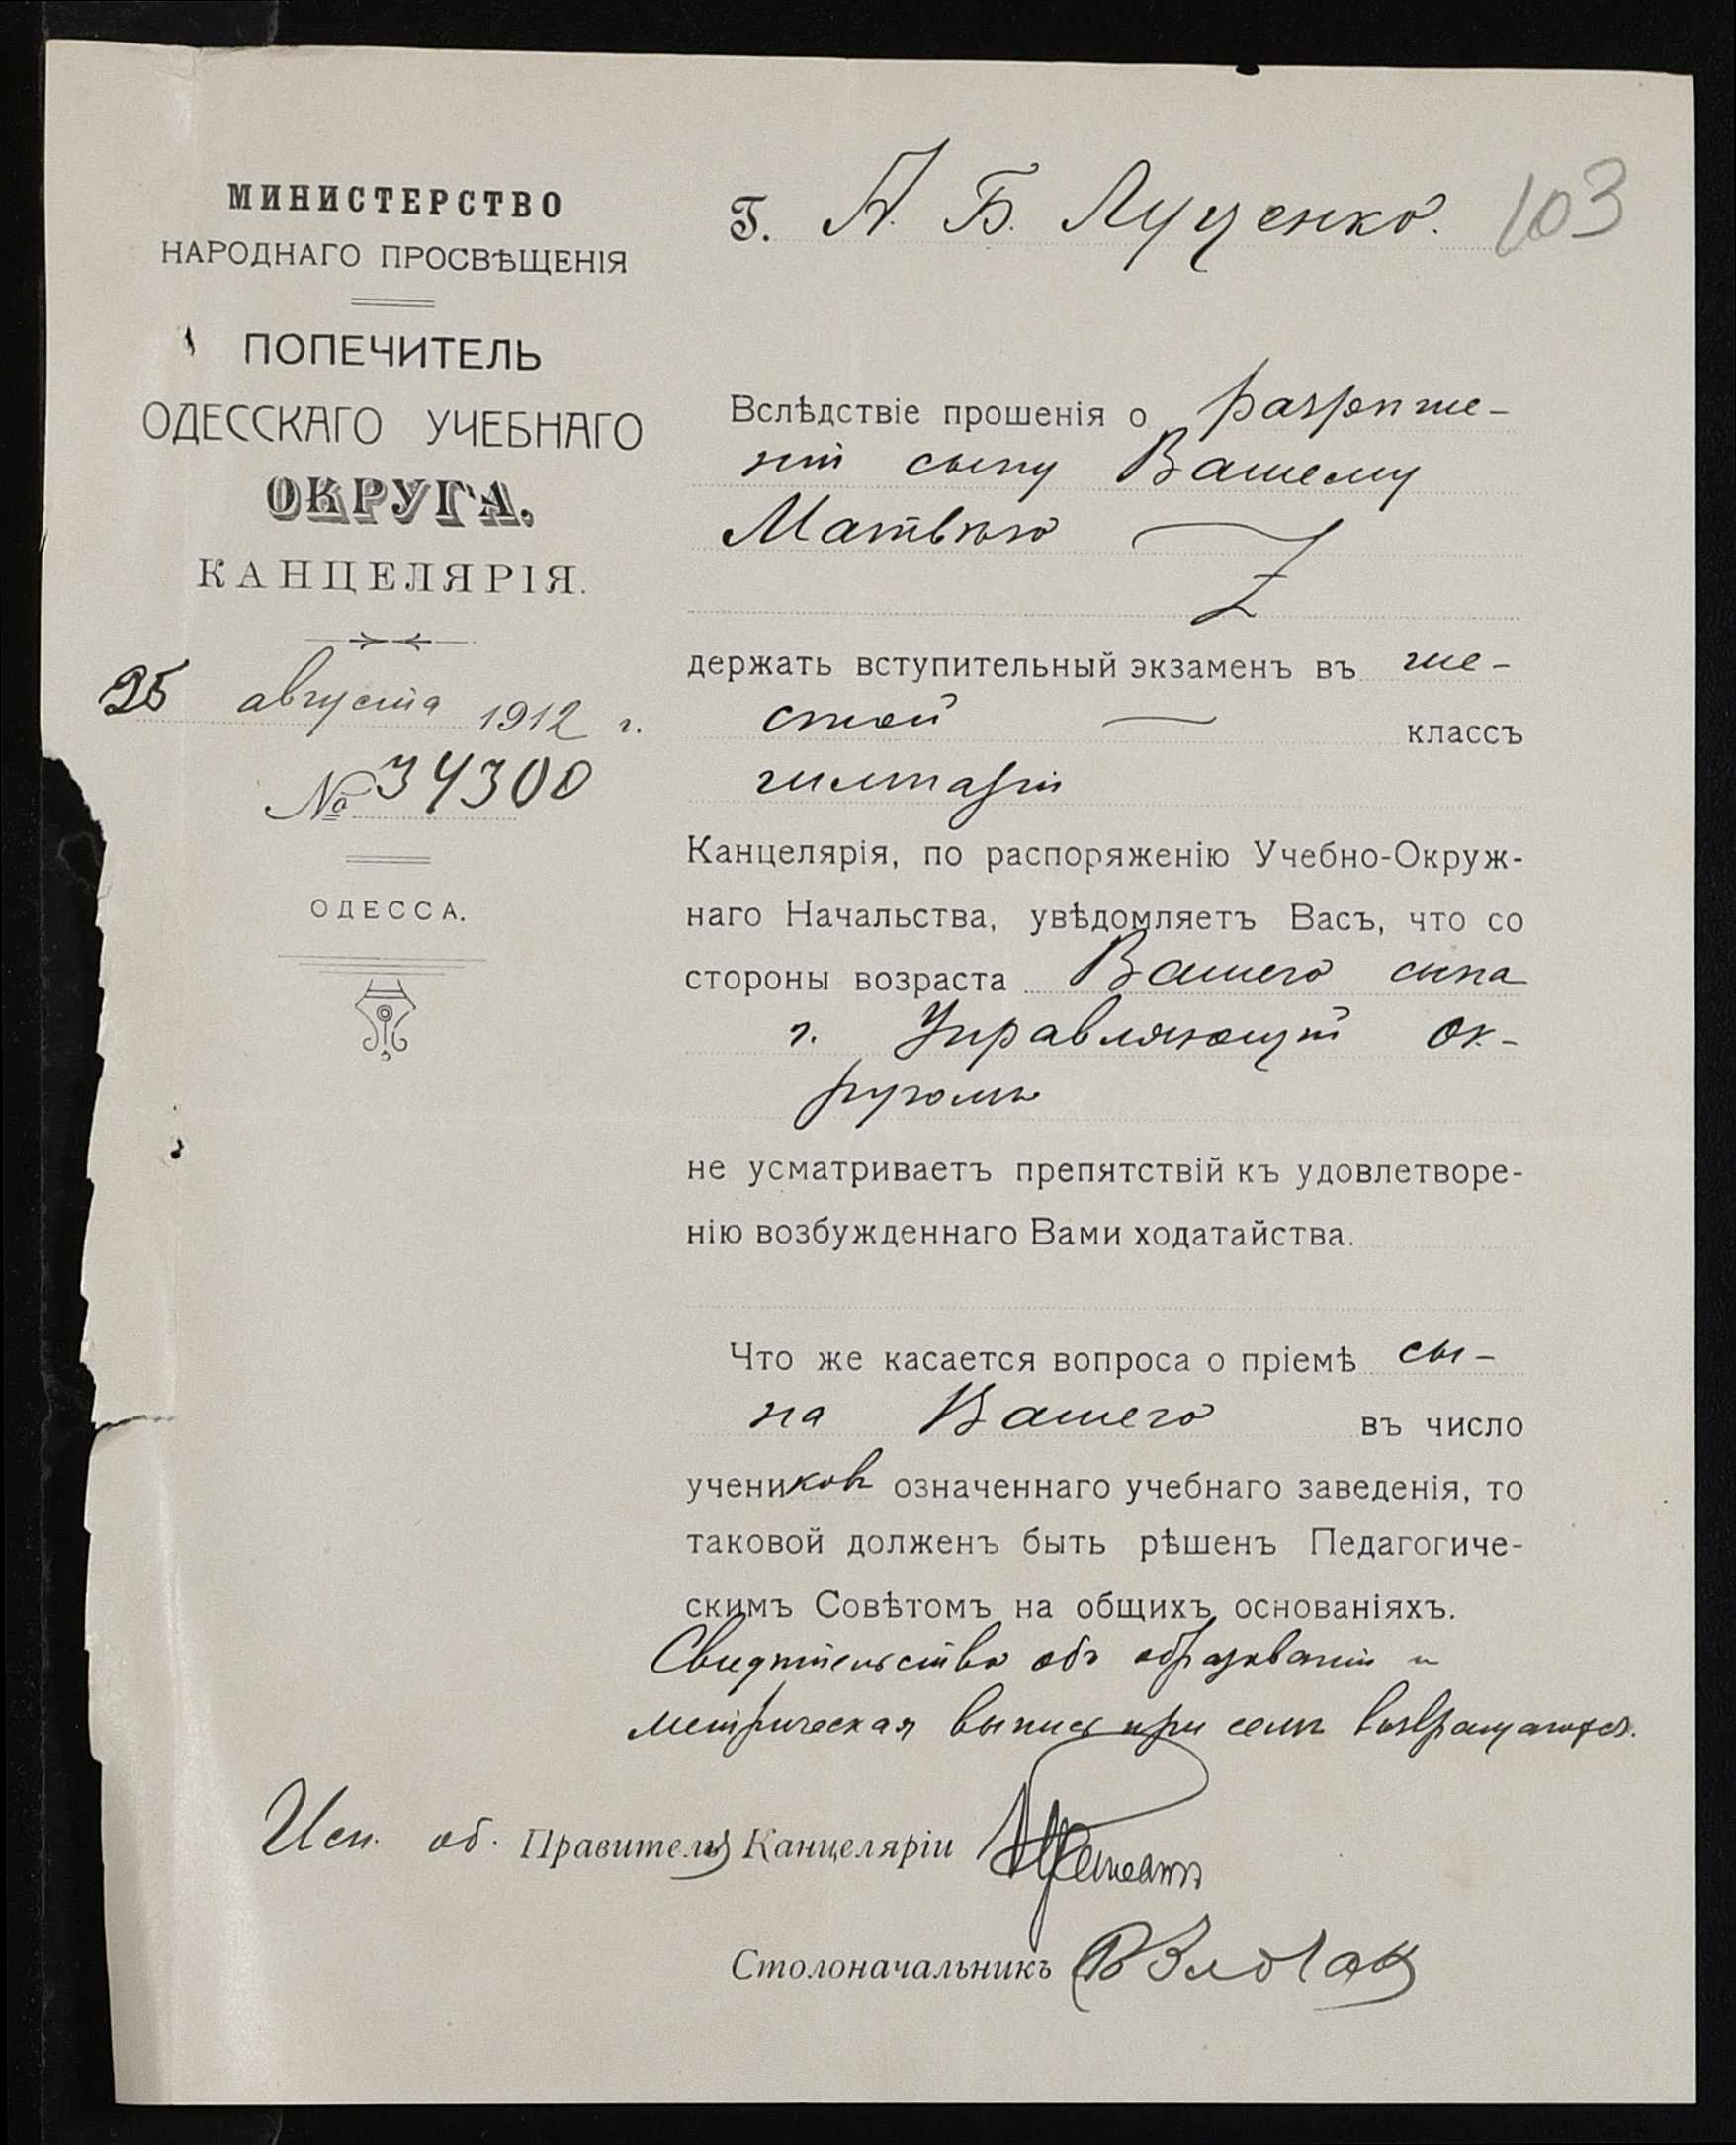 МИНИСТЕРСТВО
НАРОДНАГО ПРОСВѢЩЕНІЯ
ПОПЕЧИТЕЛЬ
ОДЕССКАГО УЧЕБНАГО
ОКРУГА.
КАНЦЕЛЯРІЯ.
25 августа 1912 г.
№ 34300
ОДЕССА.
103
Г. А. Б. Луценко.
Вслѣдствіе прошенія о разрѣше-
ніи сыну Вашему
Матвѣю
держать вступительный экзаменъ въ ше-
стой классъ
гимназіи
Канцелярія, по распоряженію Учебно-Окруж-
наго Начальства, увѣдомляетъ Васъ, что со
стороны возраста Вашего сына
г. Управляющій Ок-
ругомъ
не усматриваетъ препятствій къ удовлетворе-
нію возбужденнаго Вами ходатайства.
Что же касается вопроса о пріемѣ сы-
на Вашего въ число
учениковъ означеннаго учебнаго заведенія, то
таковой долженъ быть рѣшенъ Педагогиче-
скимъ Совѣтомъ на общихъ основаніяхъ.
Свидѣтельство объ образованіи и
метрическая выпись при семъ возвращаются.
Исп. об. Правителя Канцеляріи
Столоначальникъ